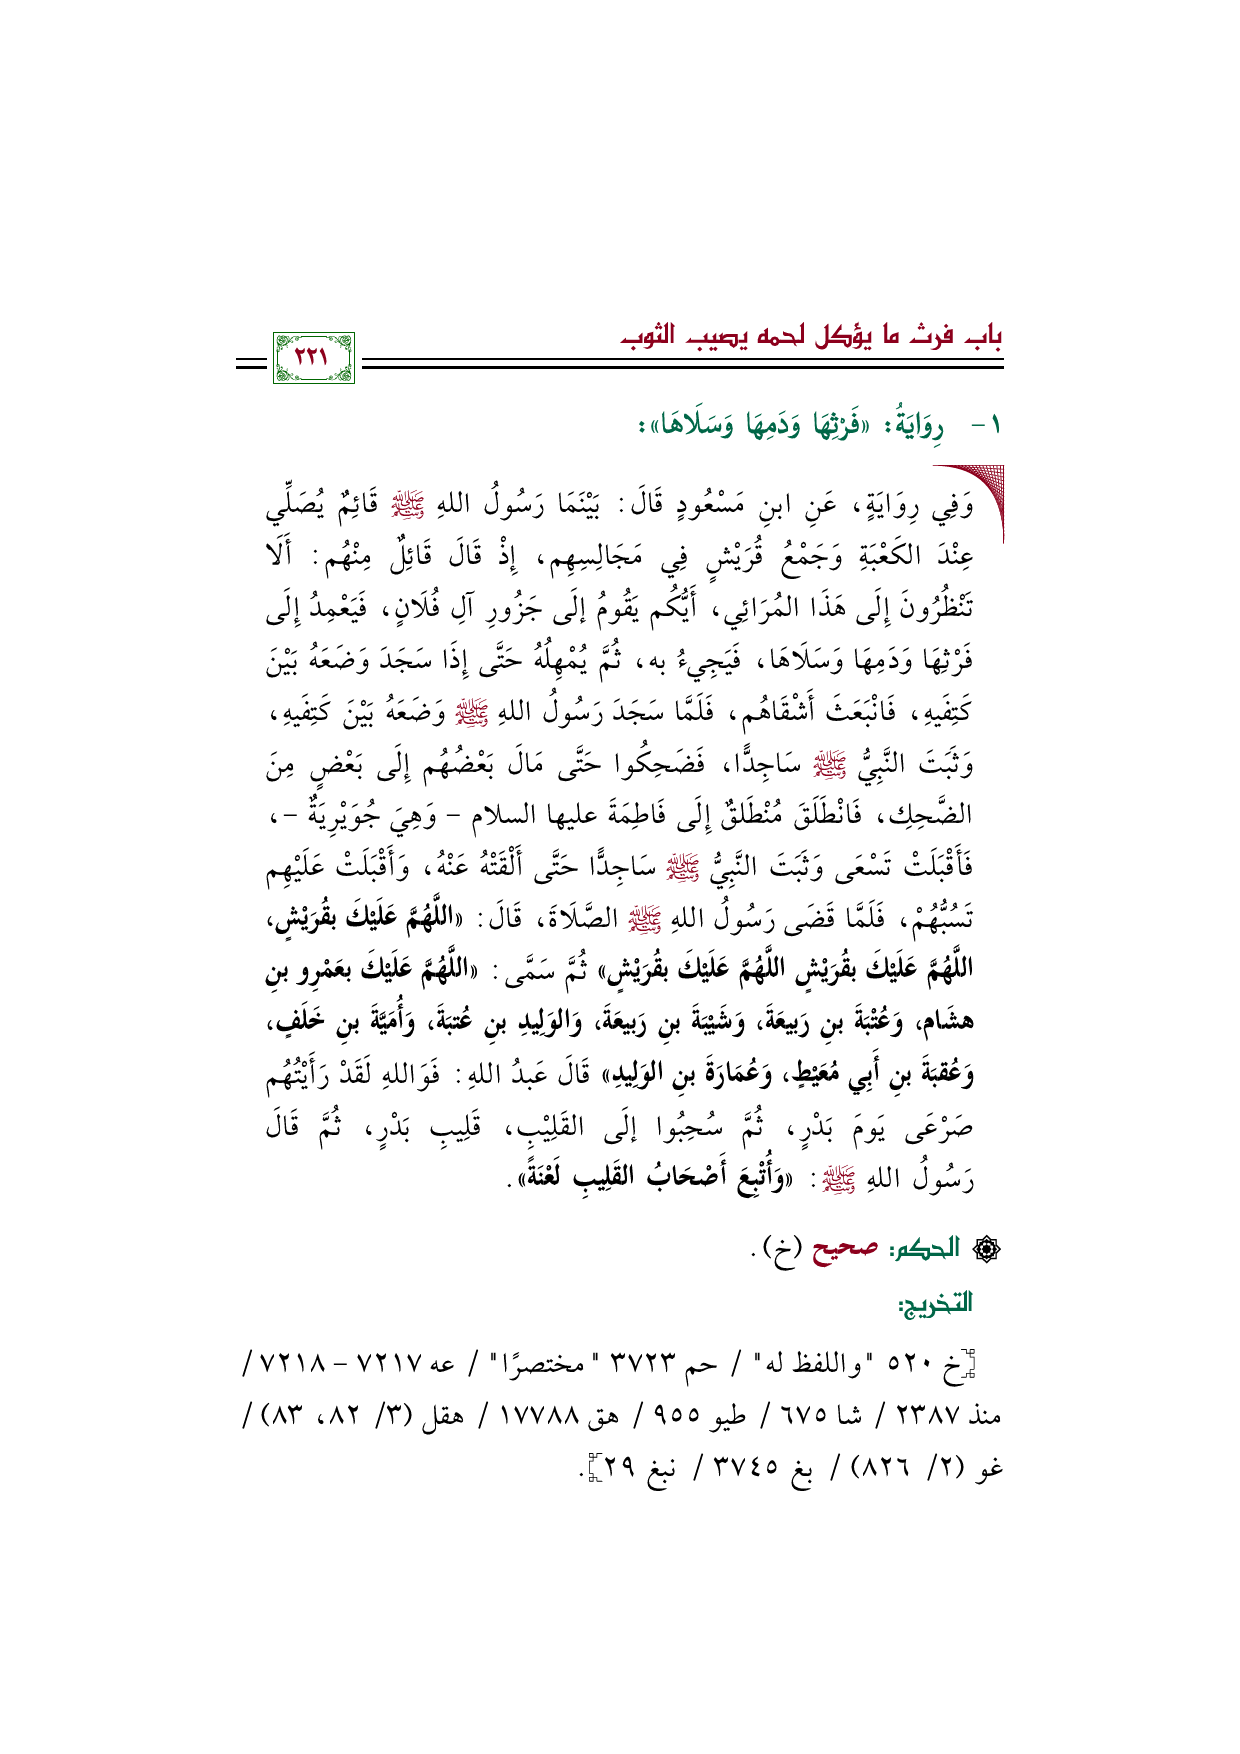 باب فرث ما يؤكل لحمه يصيب الثوب
٢٢١
١- رِوَايَةُ: «فَرْثِهَا وَدَمِهَا وَسَلَاهَا»:
وَفِي رِوَايَةٍ، عَنِ ابنِ مَسْعُودٍ قَالَ: بَيْنَمَا رَسُولُ اللهِ ﷺ قَائِمٌ يُصَلِّي
عِنْدَ الكَعْبَةِ وَجَمْعُ قُرَيْشٍ فِي مَجَالِسِهِم، إِذْ قَالَ قَائِلٌ مِنْهُم: أَلَا
تَنْظُرُونَ إِلَى هَذَا المُرَائِي، أَيُّكُم يَقُومُ إلَى جَزُورِ آلِ فُلَانٍ، فَيَعْمِدُ إِلَى
فَرْثِهَا وَدَمِهَا وَسَلَاهَا، فَيَجِيءُ به، ثُمَّ يُمْهِلُهُ حَتَّى إِذَا سَجَدَ وَضَعَهُ بَيْنَ
كَتِفَيهِ، فَانْبَعَثَ أَشْقَاهُم، فَلَمَّا سَجَدَ رَسُولُ اللهِ ﷺ وَضَعَهُ بَيْنَ كَتِفَيهِ،
وَثَبَتَ النَّبِيُّ ﷺ سَاجِدًّا، فَضَحِكُوا حَتَّى مَالَ بَعْضُهُم إِلَى بَعْضٍ مِنَ
الضَّحِكِ، فَانْطَلَقَ مُنْطَلقٌ إِلَى فَاطِمَةَ عليها السلام - وَهِيَ جُوَيْرِيَةٌ -،
فَأَقْبَلَتْ تَسْعَى وَثَبَتَ النَّبِيُّ ﷺ سَاجِدًّا حَتَّى أَلْقَتْهُ عَنْهُ، وَأَقْبَلَتْ عَلَيْهِم
تَسُبُّهُمْ، فَلَمَّا قَضَى رَسُولُ اللهِ ﷺ الصَّلَاةَ، قَالَ: «اللَّهُمَّ عَلَيْكَ بقُرَيْشٍ،
اللَّهُمَّ عَلَيْكَ بقُرَيْشٍ اللَّهُمَّ عَلَيْكَ بقُرَيْشٍ» ثُمَّ سَمَّى: «اللَّهُمَّ عَلَيْكَ بعَمْرِو بنِ
هشَام، وَعُتْبَةَ بنِ رَبيعَةَ، وَشَيْبَةَ بنِ رَبيعَةَ، وَالوَلِيدِ بنِ عُتبَةَ، وَأُمَيَّةَ بنِ خَلَفٍ،
وَعُقبَةَ بنِ أَبِي مُعَيْطٍ، وَعُمَارَةَ بنِ الوَلِيدِ» قَالَ عَبدُ اللهِ: فَوَاللهِ لَقَدْ رَأَيْتُهُم
صَرْعَى يَومَ بَدْرٍ، ثُمَّ سُحِبُوا إلَى القَلِيْبِ، قَلِيبِ بَدْرٍ، ثُمَّ قَالَ
رَسُولُ اللهِ ﷺ: «وَأُتْبِعَ أَصْحَابُ القَلِيبِ لَعْنَةً».
الحكم: صحيح (خ).
التخريج:
[خ ٥٢٠ "واللفظ له" / حم ٣٧٢٣ "مختصرًا" / عه ٧٢١٧ - ٧٢١٨ /
منذ ٢٣٨٧ / شا ٦٧٥ / طيو ٩٥٥ / هق ١٧٧٨٨ / هقل (٣/ ٨٢، ٨٣) /
غو (٢/ ٨٢٦) / بغ ٣٧٤٥ / نبغ ٢٩].